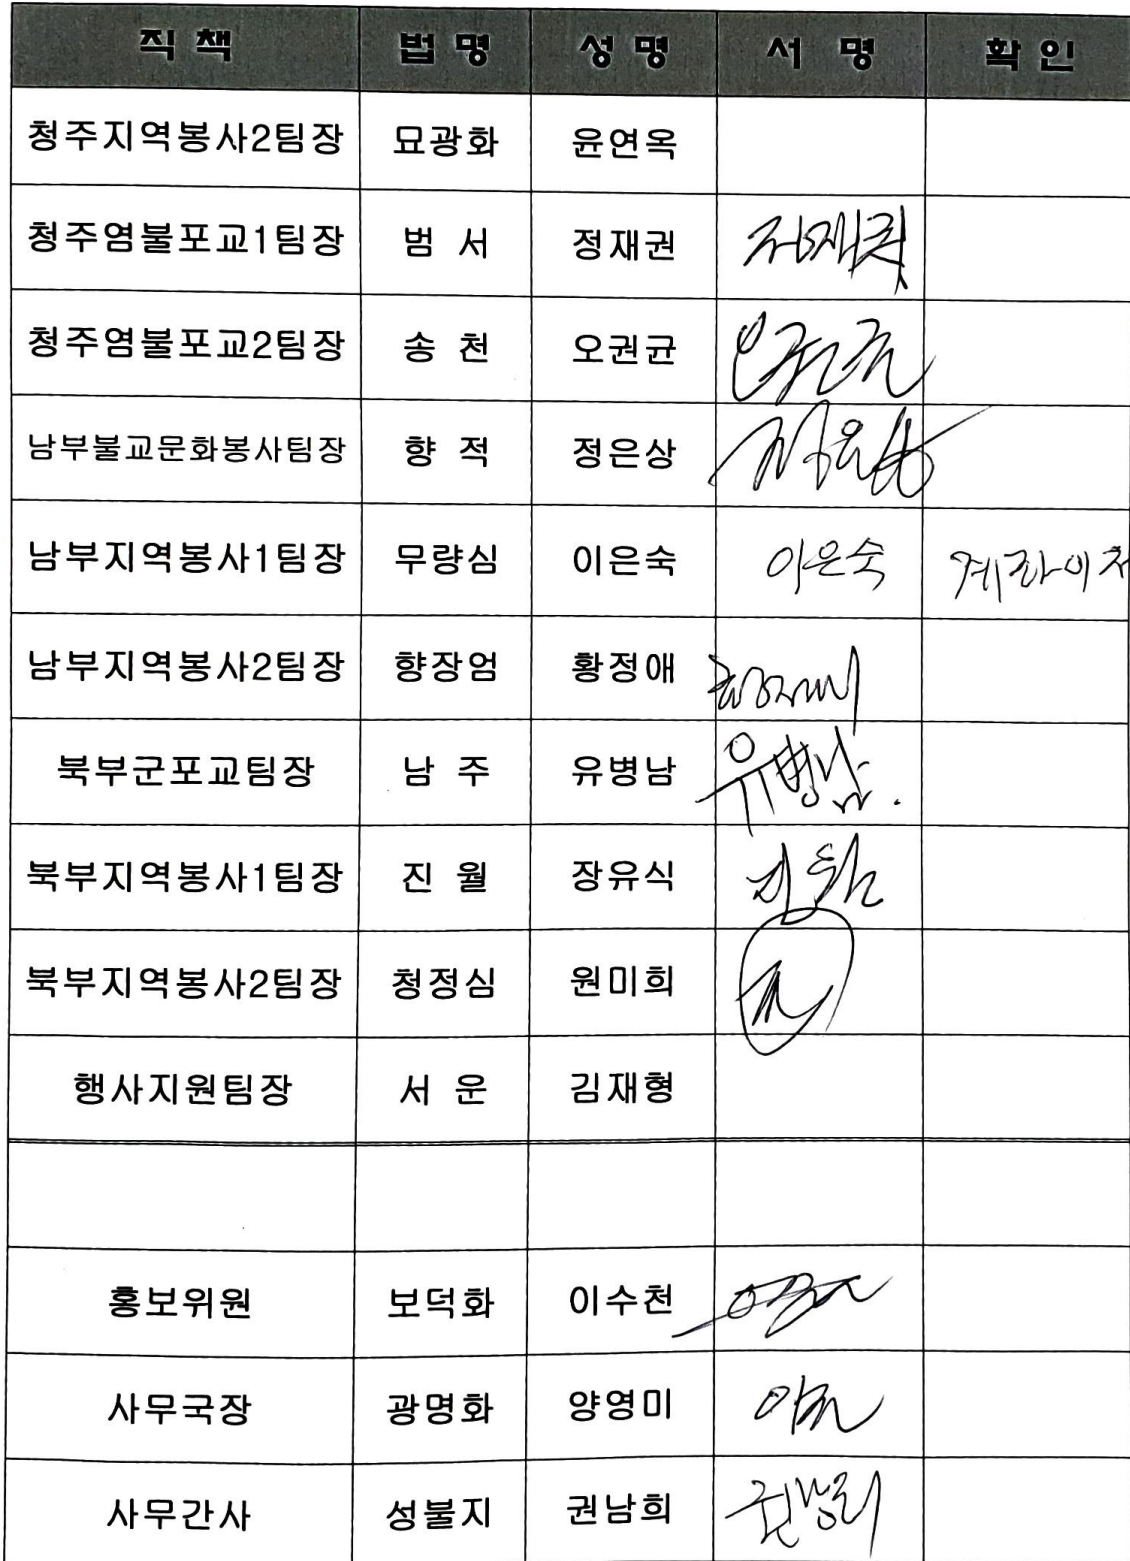 직 책 법 명 성 명 서 명 확 인
청주지역봉사2팀장 묘광화 윤연옥
청주염불포교1팀장 범 서 정재권 정재권
청주염불포교2팀장 송 천 오권균
남부불교문화봉사팀장 향 적 정은상
남부지역봉사1팀장 무량심 이은숙 이은숙 계좌이체
남부지역봉사2팀장 향장엄 황정애
북부군포교팀장 남 주 유병남 유병남.
북부지역봉사1팀장 진 월 장유식 진월
북부지역봉사2팀장 청정심 원미희
행사지원팀장 서 운 김재형
홍보위원 보덕화 이수천
사무국장 광명화 양영미
사무간사 성불지 권남희